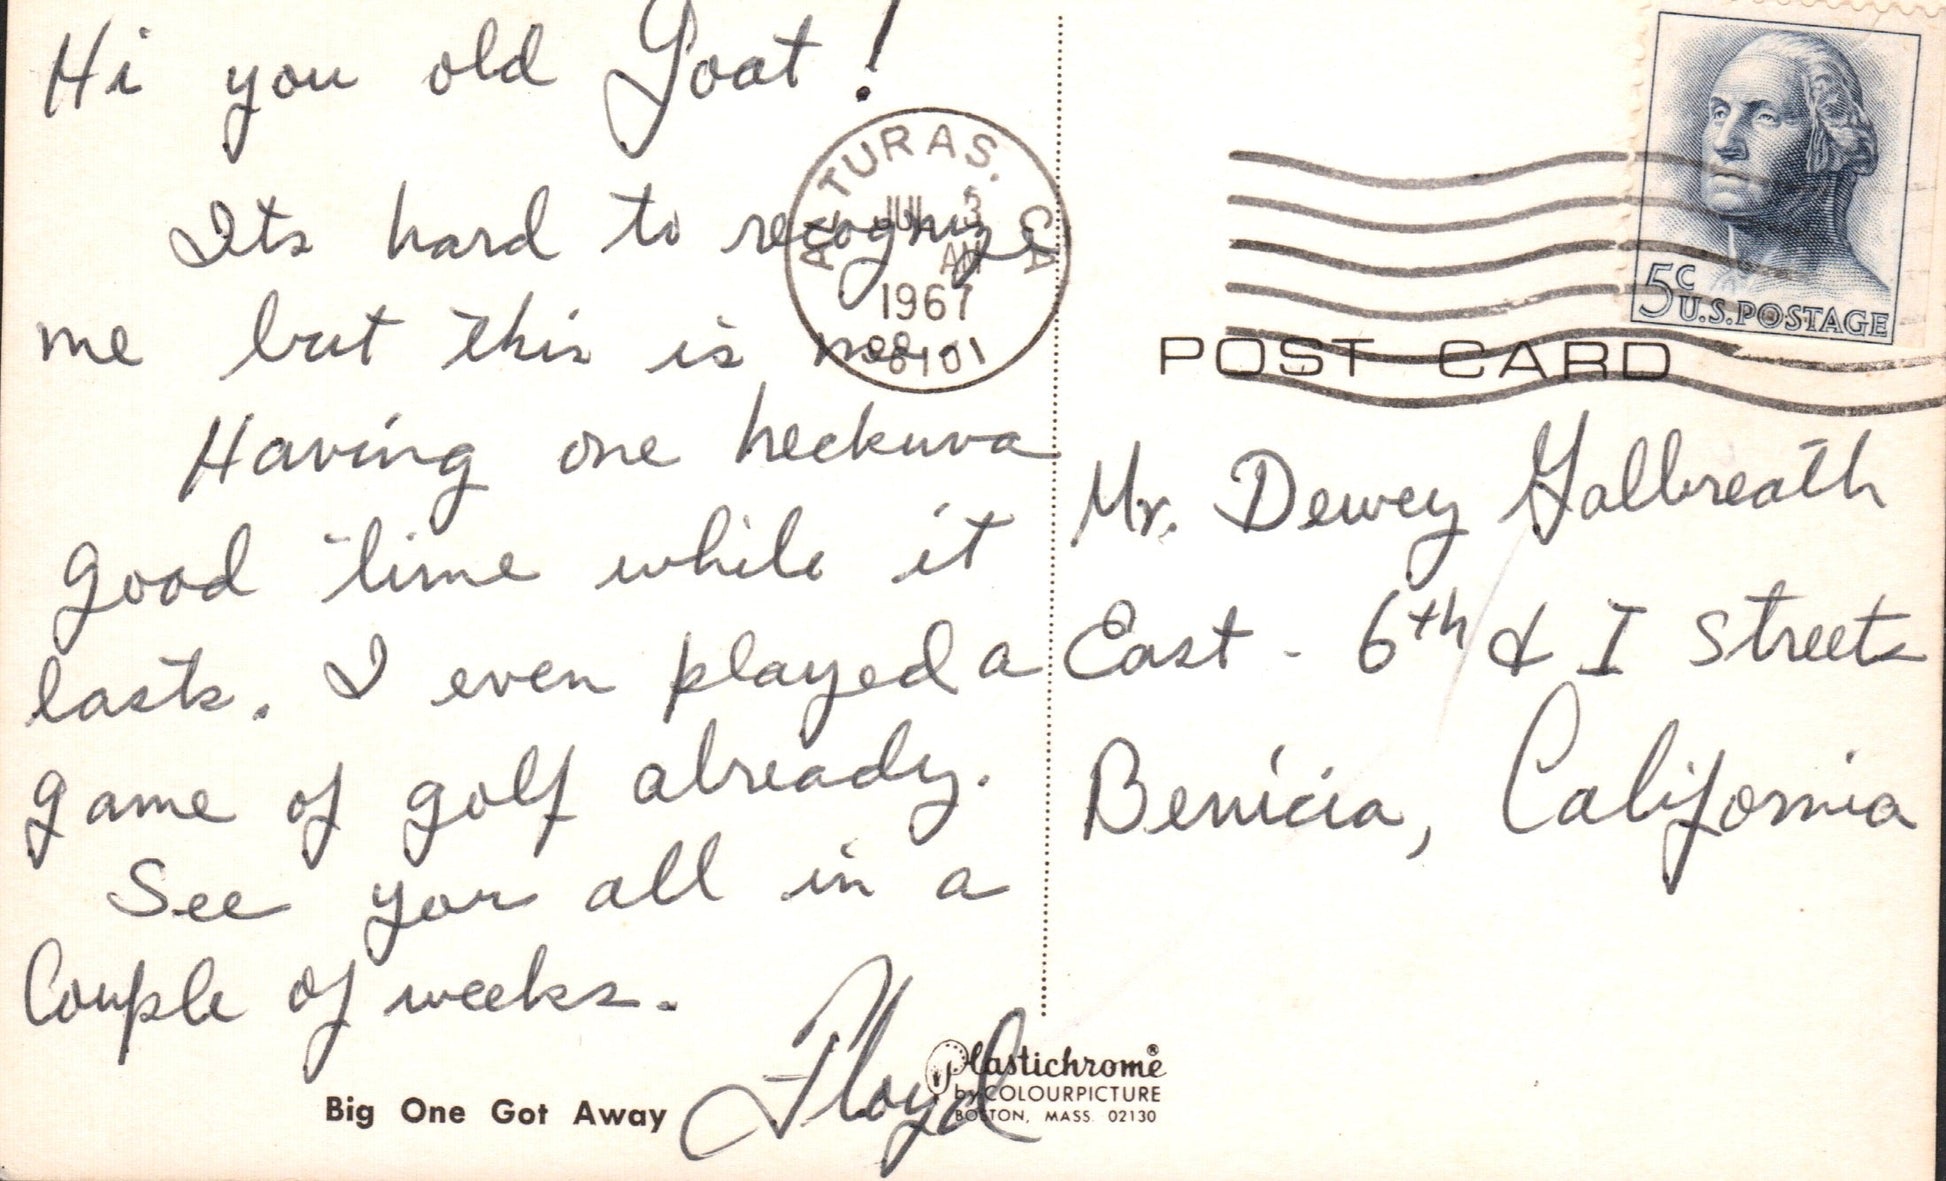 Hi you old Goat!
Its hard to recognize
me but this is me.
Having one heckuva
good time while it
lasts. I even played a
game of golf already.
See you all in a
Couple of weeks.
Floyd
Big One Got Away
ALTURAS. CA
JUL 3
AM
1967
96101
5¢ U.S. POSTAGE
POST CARD
Mr. Dewey Galbreath
East - 6th & I Streets
Benicia, California
Plastichrome®
by COLOURPICTURE
BOSTON, MASS. 02130